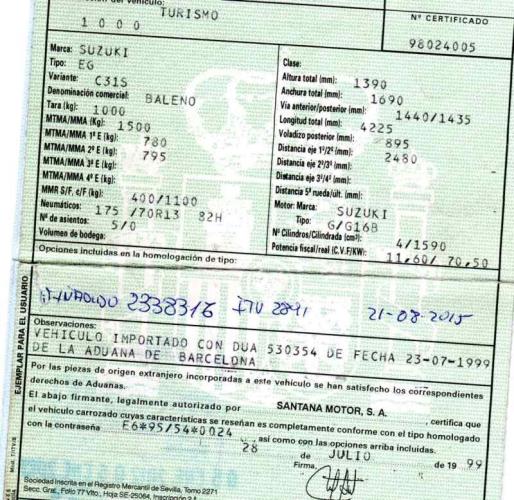 del vehículo:
TURISMO
1000
Nº CERTIFICADO
98024005
Marca: SUZUKI
Tipo: EG
Variante: C31S
Denominación comercial: BALENO
Tara (kg): 1000
MTMA/MMA (Kg): 1500
MTMA/MMA 1º E (kg): 780
MTMA/MMA 2º E (kg): 795
MTMA/MMA 3º E (kg):
MTMA/MMA 4º E (kg):
MMR S/F. c/F (kg): 400/1100
Neumáticos: 175 /70R13 82H
Nº de asientos: 5/0
Volumen de bodega:
Clase:
Altura total (mm): 1390
Anchura total (mm): 1690
Vía anterior/posterior (mm): 1440/1435
Longitud total (mm): 4225
Voladizo posterior (mm): 895
Distancia eje 1º/2º (mm): 2480
Distancia eje 2º/3º (mm):
Distancia eje 3º/4º (mm):
Distancia 5ª rueda/últ. (mm):
Motor: Marca: SUZUKI
Tipo: G/G16B
Nº Cilindros/Cilindrada (cm³): 4/1590
Potencia fiscal/real (C.V.F/KW): 11,60/ 70,50
Opciones incluidas en la homologación de tipo:
2338316 ITV 2841 21-08-2015
EJEMPLAR PARA EL USUARIO
Observaciones:
VEHICULO IMPORTADO CON DUA 530354 DE FECHA 23-07-1999
DE LA ADUANA DE BARCELONA
Por las piezas de origen extranjero incorporadas a este vehículo se han satisfecho los correspondientes
derechos de Aduanas.
El abajo firmante, legalmente autorizado por SANTANA MOTOR, S. A. , certifica que
el vehículo carrozado cuyas características se reseñan es completamente conforme con el tipo homologado
con la contraseña E6*95/54*0024 , así como con las opciones arriba incluidas.
28 de JULIO de 19 99
Firma,
Sociedad Inscrita en el Registro Mercantil de Sevilla, Tomo 2271
Secc. Gral., Folio 77 Vlto., Hoja SE-25064, Inscripción